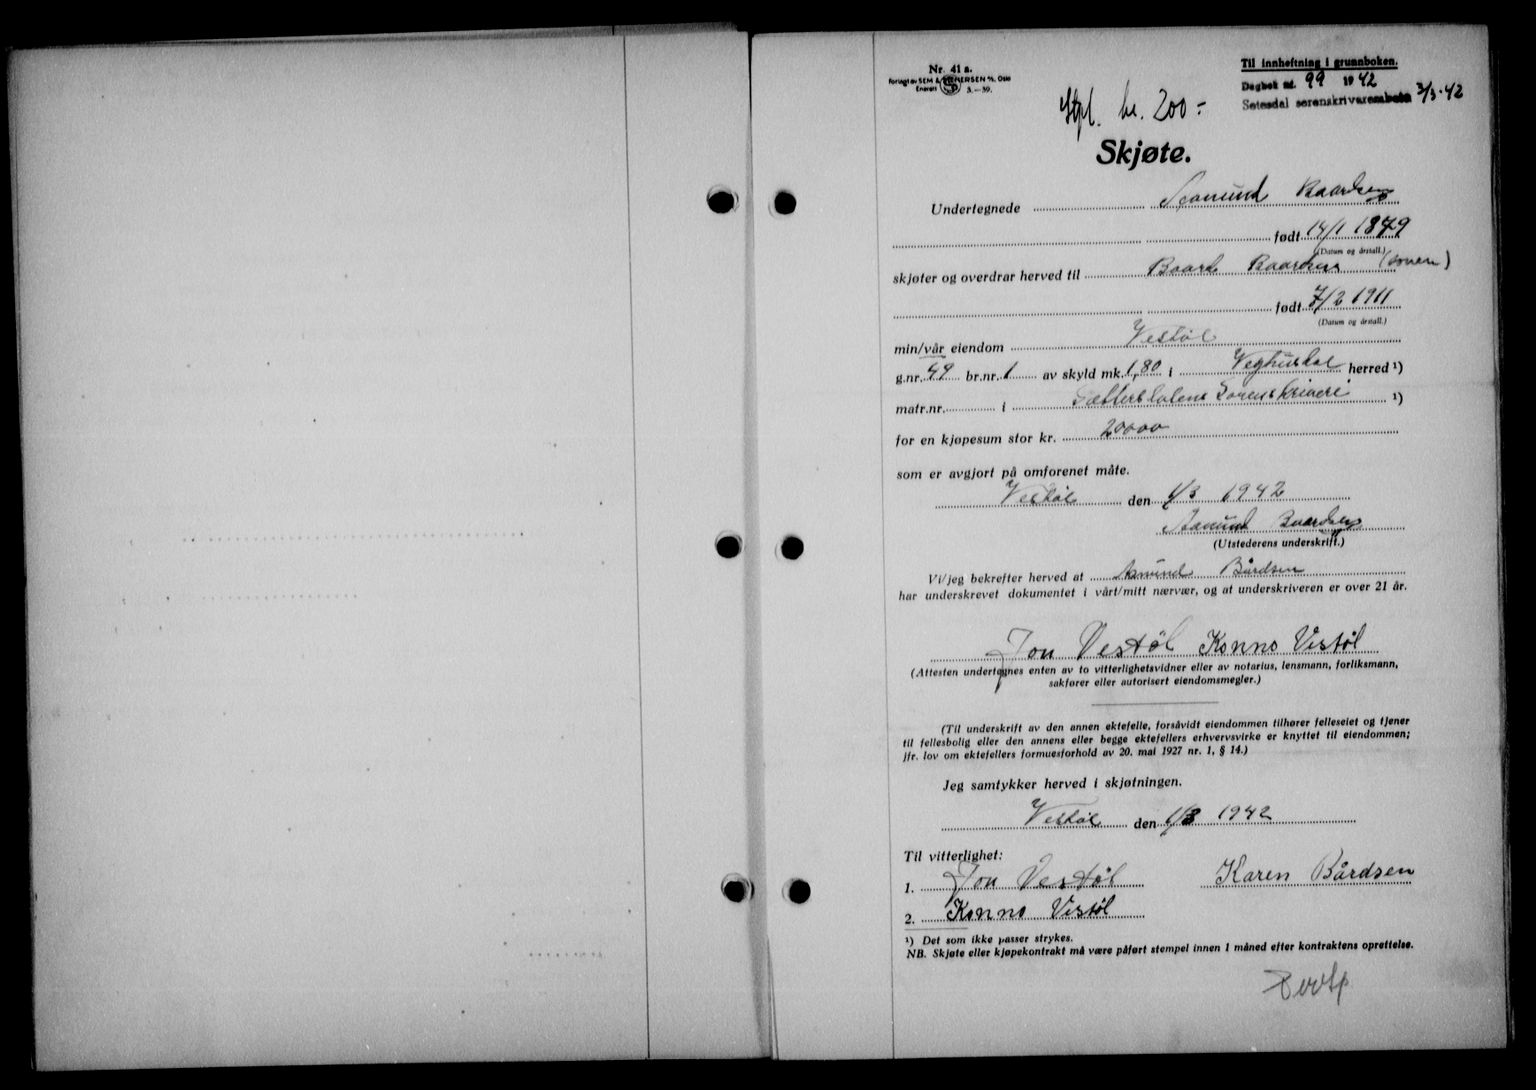 Nr. 41 a.
Forlagt av SEM & STENERSEN A/S, Oslo
Enerett SP 3.—39.
Til innheftning i grunnboken.
Dagbok nr. 99 1942
Setesdal sorenskrivarembete 2/3-42
Stpl. kr. 200.-
Skjøte.
Undertegnede Aanund Baardsen
født 14/1 1879
(Datum og årstall.)
skjøter og overdrar herved til Baard Baardsen (sønen)
født 7/2 1911
(Datum og årstall.)
min/vår eiendom Vestøl
g.nr. 49 br.nr. 1 av skyld mk. 1,80 i Vegusdal herred ¹)
matr.nr. i Sættersdalens Sorenskriveri ¹)
for en kjøpesum stor kr. 20000
som er avgjort på omforenet måte.
Vestøl den 1/3 1942
Aanund Baardsen
(Utstederens underskrift.)
Vi/jeg bekrefter herved at Aanund Bårdsen
har underskrevet dokumentet i vårt/mitt nærvær, og at underskriveren er over 21 år.
Jon Vestøl Konno Vestøl
(Attesten undertegnes enten av to vitterlighetsvidner eller av notarius, lensmann, forliksmann,
sakfører eller autorisert eiendomsmegler.)
(Til underskrift av den annen ektefelle, forsåvidt eiendommen tilhører felleseiet og tjener
til fellesbolig eller den annens eller begge ektefellers erhvervsvirke er knyttet til eiendommen;
jfr. lov om ektefellers formuesforhold av 20. mai 1927 nr. 1, § 14.)
Jeg samtykker herved i skjøtningen.
Vestøl den 1/3 1942
Til vitterlighet:
1. Jon Vestøl Karen Bårdsen
2. Konno Vestøl
¹) Det som ikke passer strykes.
NB. Skjøte eller kjøpekontrakt må være påført stempel innen 1 måned efter kontraktens oprettelse.